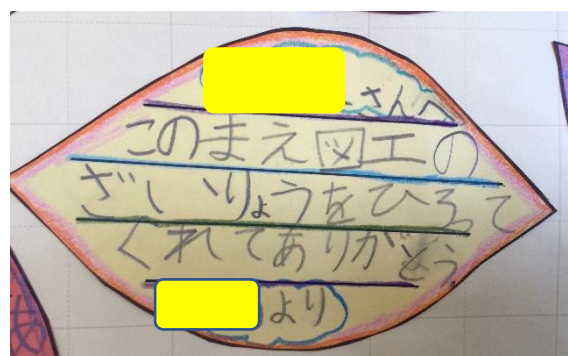 さんへ
このまえ図工の
ざいりょうをひろって
くれてありがとう
より